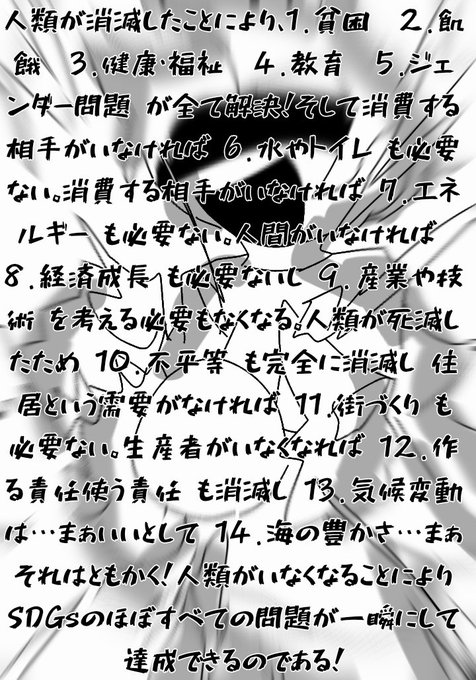 人類が消滅したことにより、1.貧困　2.飢
餓　3.健康・福祉　4.教育　5.ジェ
ンダー問題 が全て解決!そして消費する
相手がいなければ 6.水やトイレ も必要
ない。消費する相手がいなければ 7.エネ
ルギー も必要ない。人間がいなければ
8.経済成長 も必要ないし 9.産業や技
術 を考える必要もなくなる。人類が死滅し
たため 10.不平等 も完全に消滅し 住
居という需要がなければ 11.街づくり も
必要ない。生産者がいなくなれば 12.作
る責任使う責任 も消滅し 13.気候変動
は…まぁいいとして 14.海の豊かさ…まぁ
それはともかく!人類がいなくなることにより
SDGsのほぼすべての問題が一瞬にして
達成できるのである!